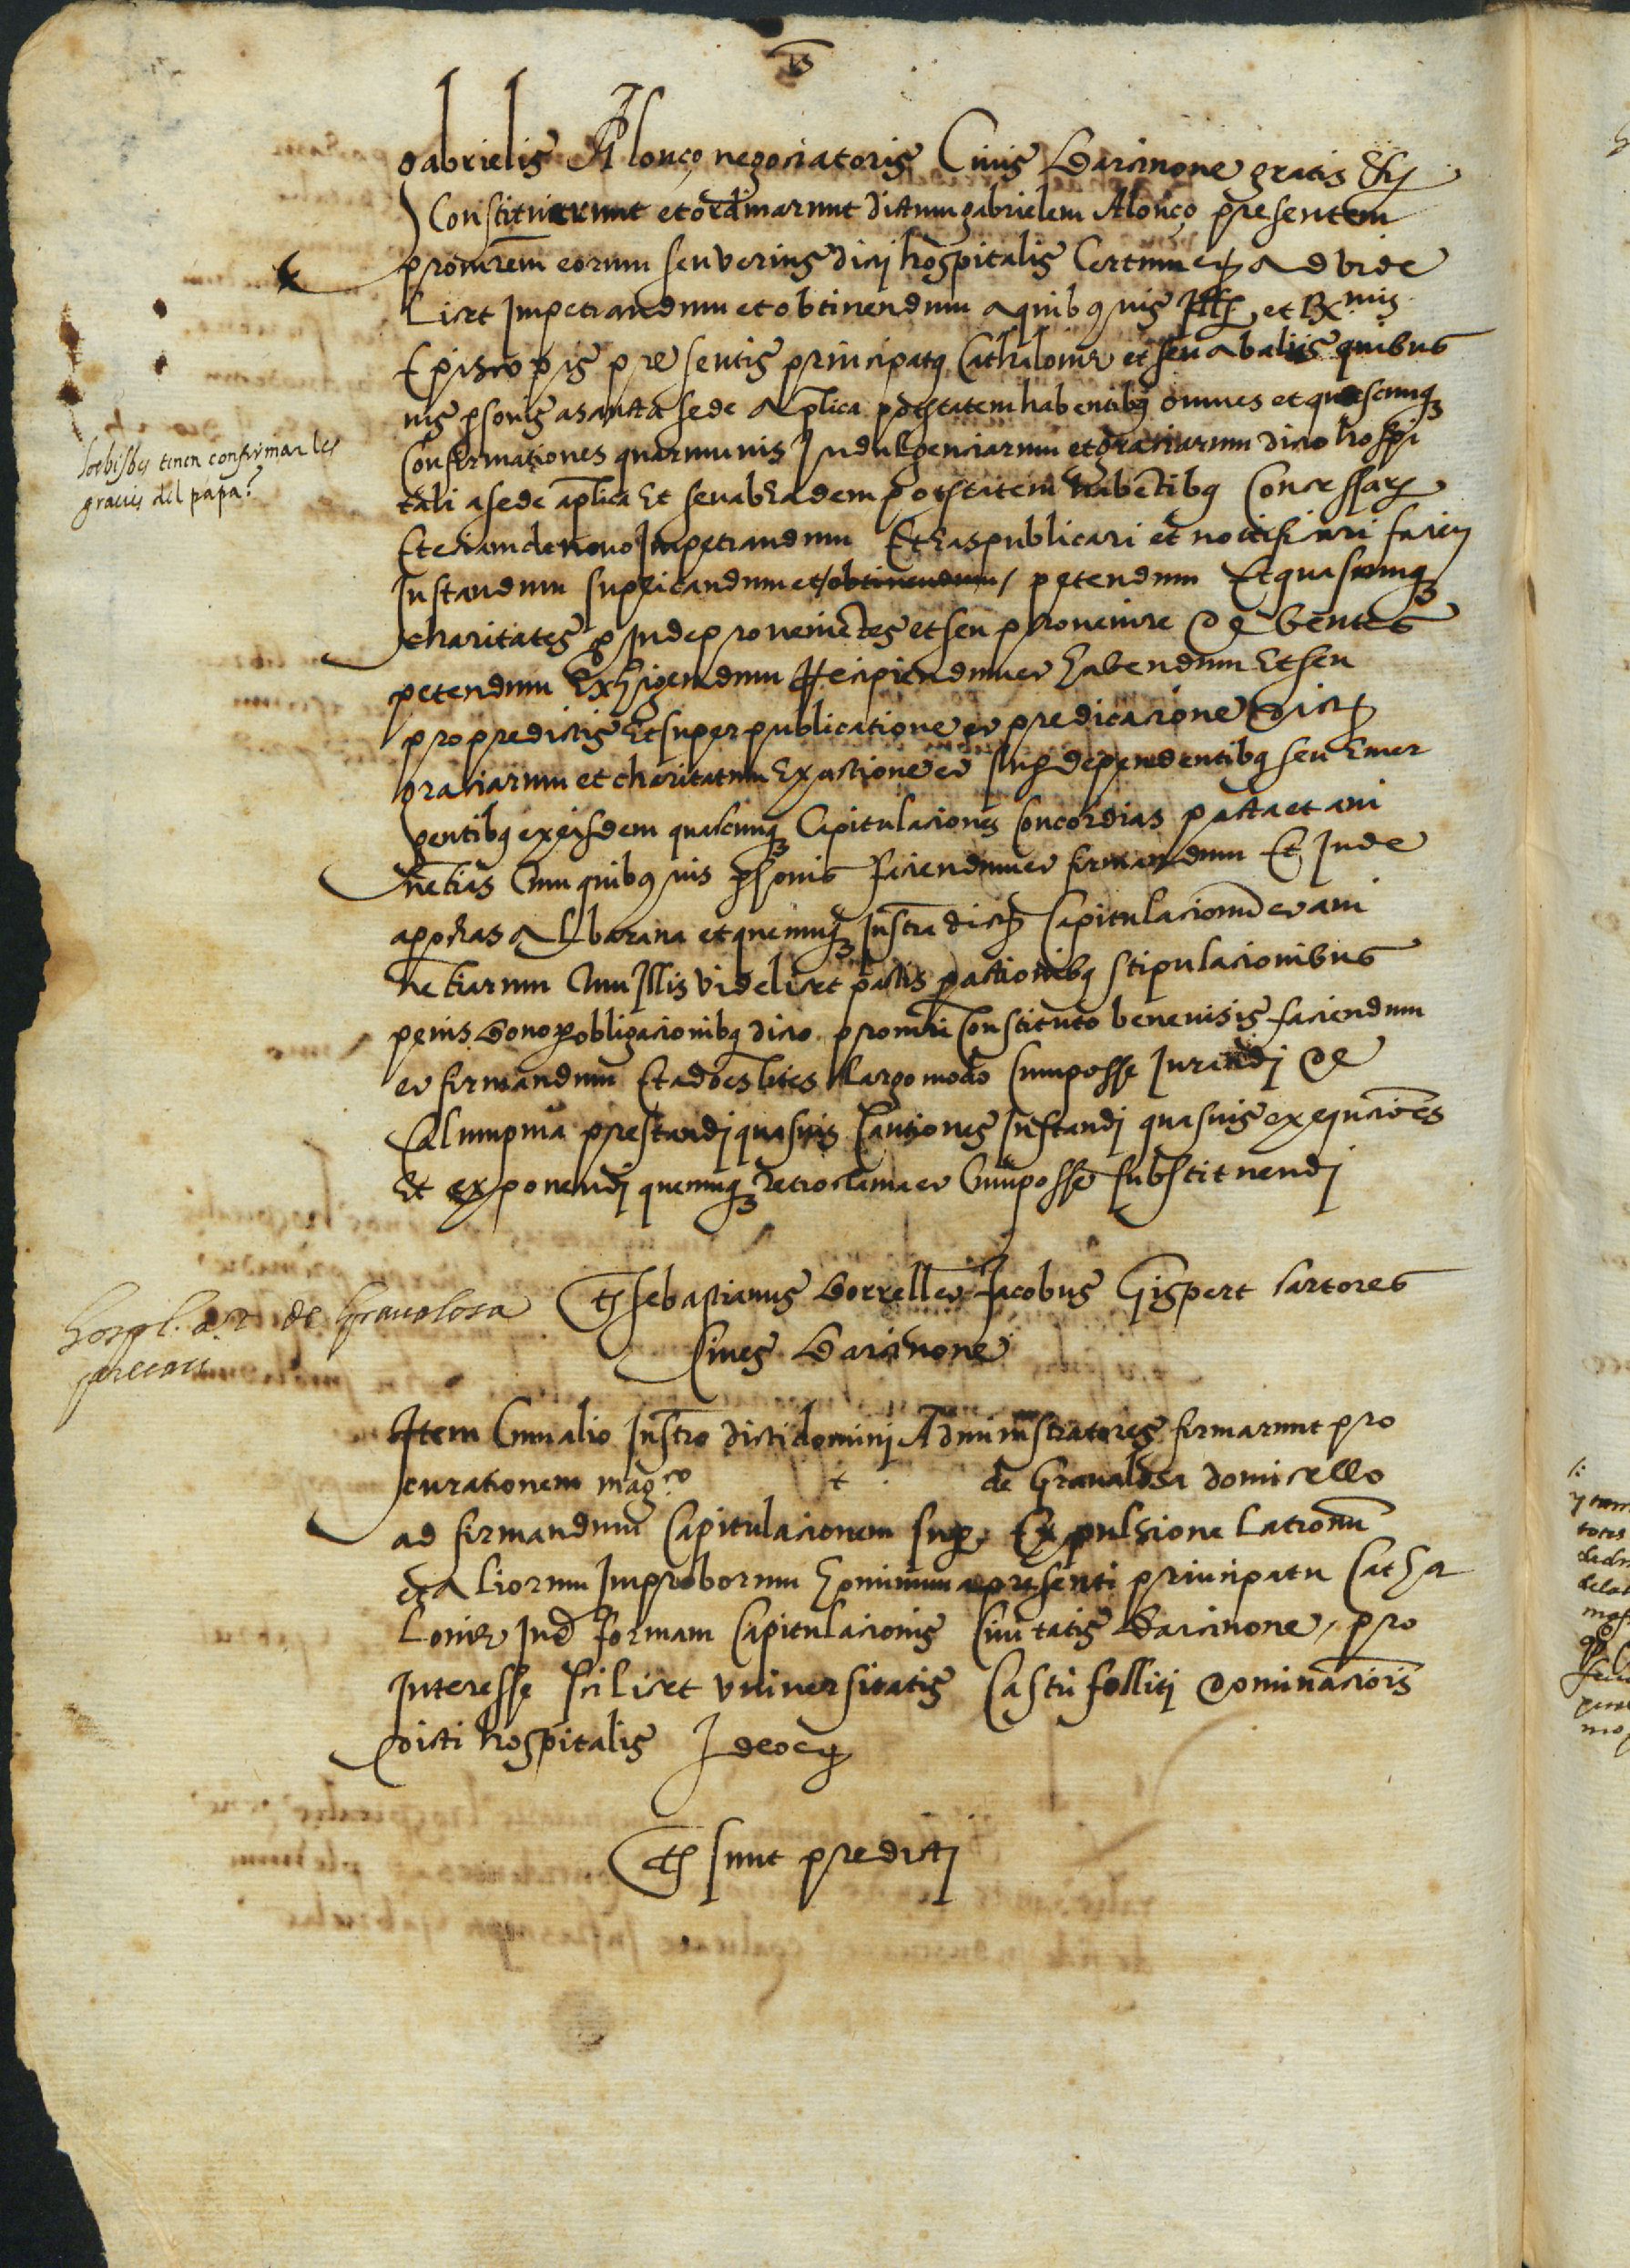 gabrielis Alonço negociatoris Civis Barcinone gratis &c
Constituerunt et ordinarunt dictum gabrielem Alonço presentem
procurem eorum seu verius dicti hospitalis Certum et Ad vide
licet Impetrandum et obtinendum a quibusvis Illus et Rx.mis
Episcopis presentis principatus Cathalonie et seu ab aliis quibus
vis personis a sancta sede aplica potestatem habentibus omnes et quascumque
Confirmationes quarumvis Indulgenciarum et graciarum dicto hospi
tali a sede aplica Et seu ab Eadem potestatem habentibus Concessarum
Et etiam de novo Impetrandum Et Eas publicari et notificari
Instandum suplicandum et obtinendum petendum Et quascumque
charitates Inde provenientes et seu provenire Debentes
petendum Exhigendum Recipiendum et habendum Et seu
pro predictis Et super publicatione et predicacione dictarum
graciarum et charitatum Exactione et sup dependentibus seu Emer
gentibus ex eisdem quascumque Capitulaciones Concordias pacta et avi
nentias Cum quibusvis personis faciendum et firmandum Et Inde
apochas Albarana et quecumque Instra dictarum Capitulacionum et avi
nentiarum Cum Illis videlicet pactis pactionibus stipulacionibus
penis bonorum obligacionibus dicto procuri Constituto benevisis faciendum
et firmandum Et ad oes lites largo modo Cum posse Jurandi De
Calumpnia prestandi quasvis Cautiones Instandi quasvis exequciones
Et exponendi quecumque retroclama et Cum posse substituendi
Ts sebastianus Borrell et Jacobus Gispert sartores
Cives Barcinone
Los bisbes tenen confirmar les
gracies del papa?
de Gravolosa
Item Cum alio Instro dicti domini Administratores firmarunt pro
curationem mag.co + de Gravalosa domicello
ad firmandum Capitulacionem sup Expulsione Latronum
et Aliorum Improborum hominum a presenti principatu Catha
lonie Iud formam Capitulacionis Civitatis Barcinone, pro
Interesse scilicet universitatis Castri folliti dominacionis
dicti hospitalis Ideoque
Ts sunt predicti